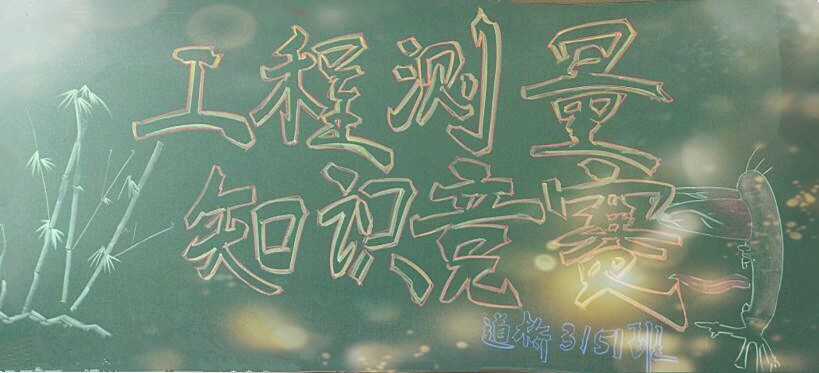 工程测量
知识竞赛
道桥3151班